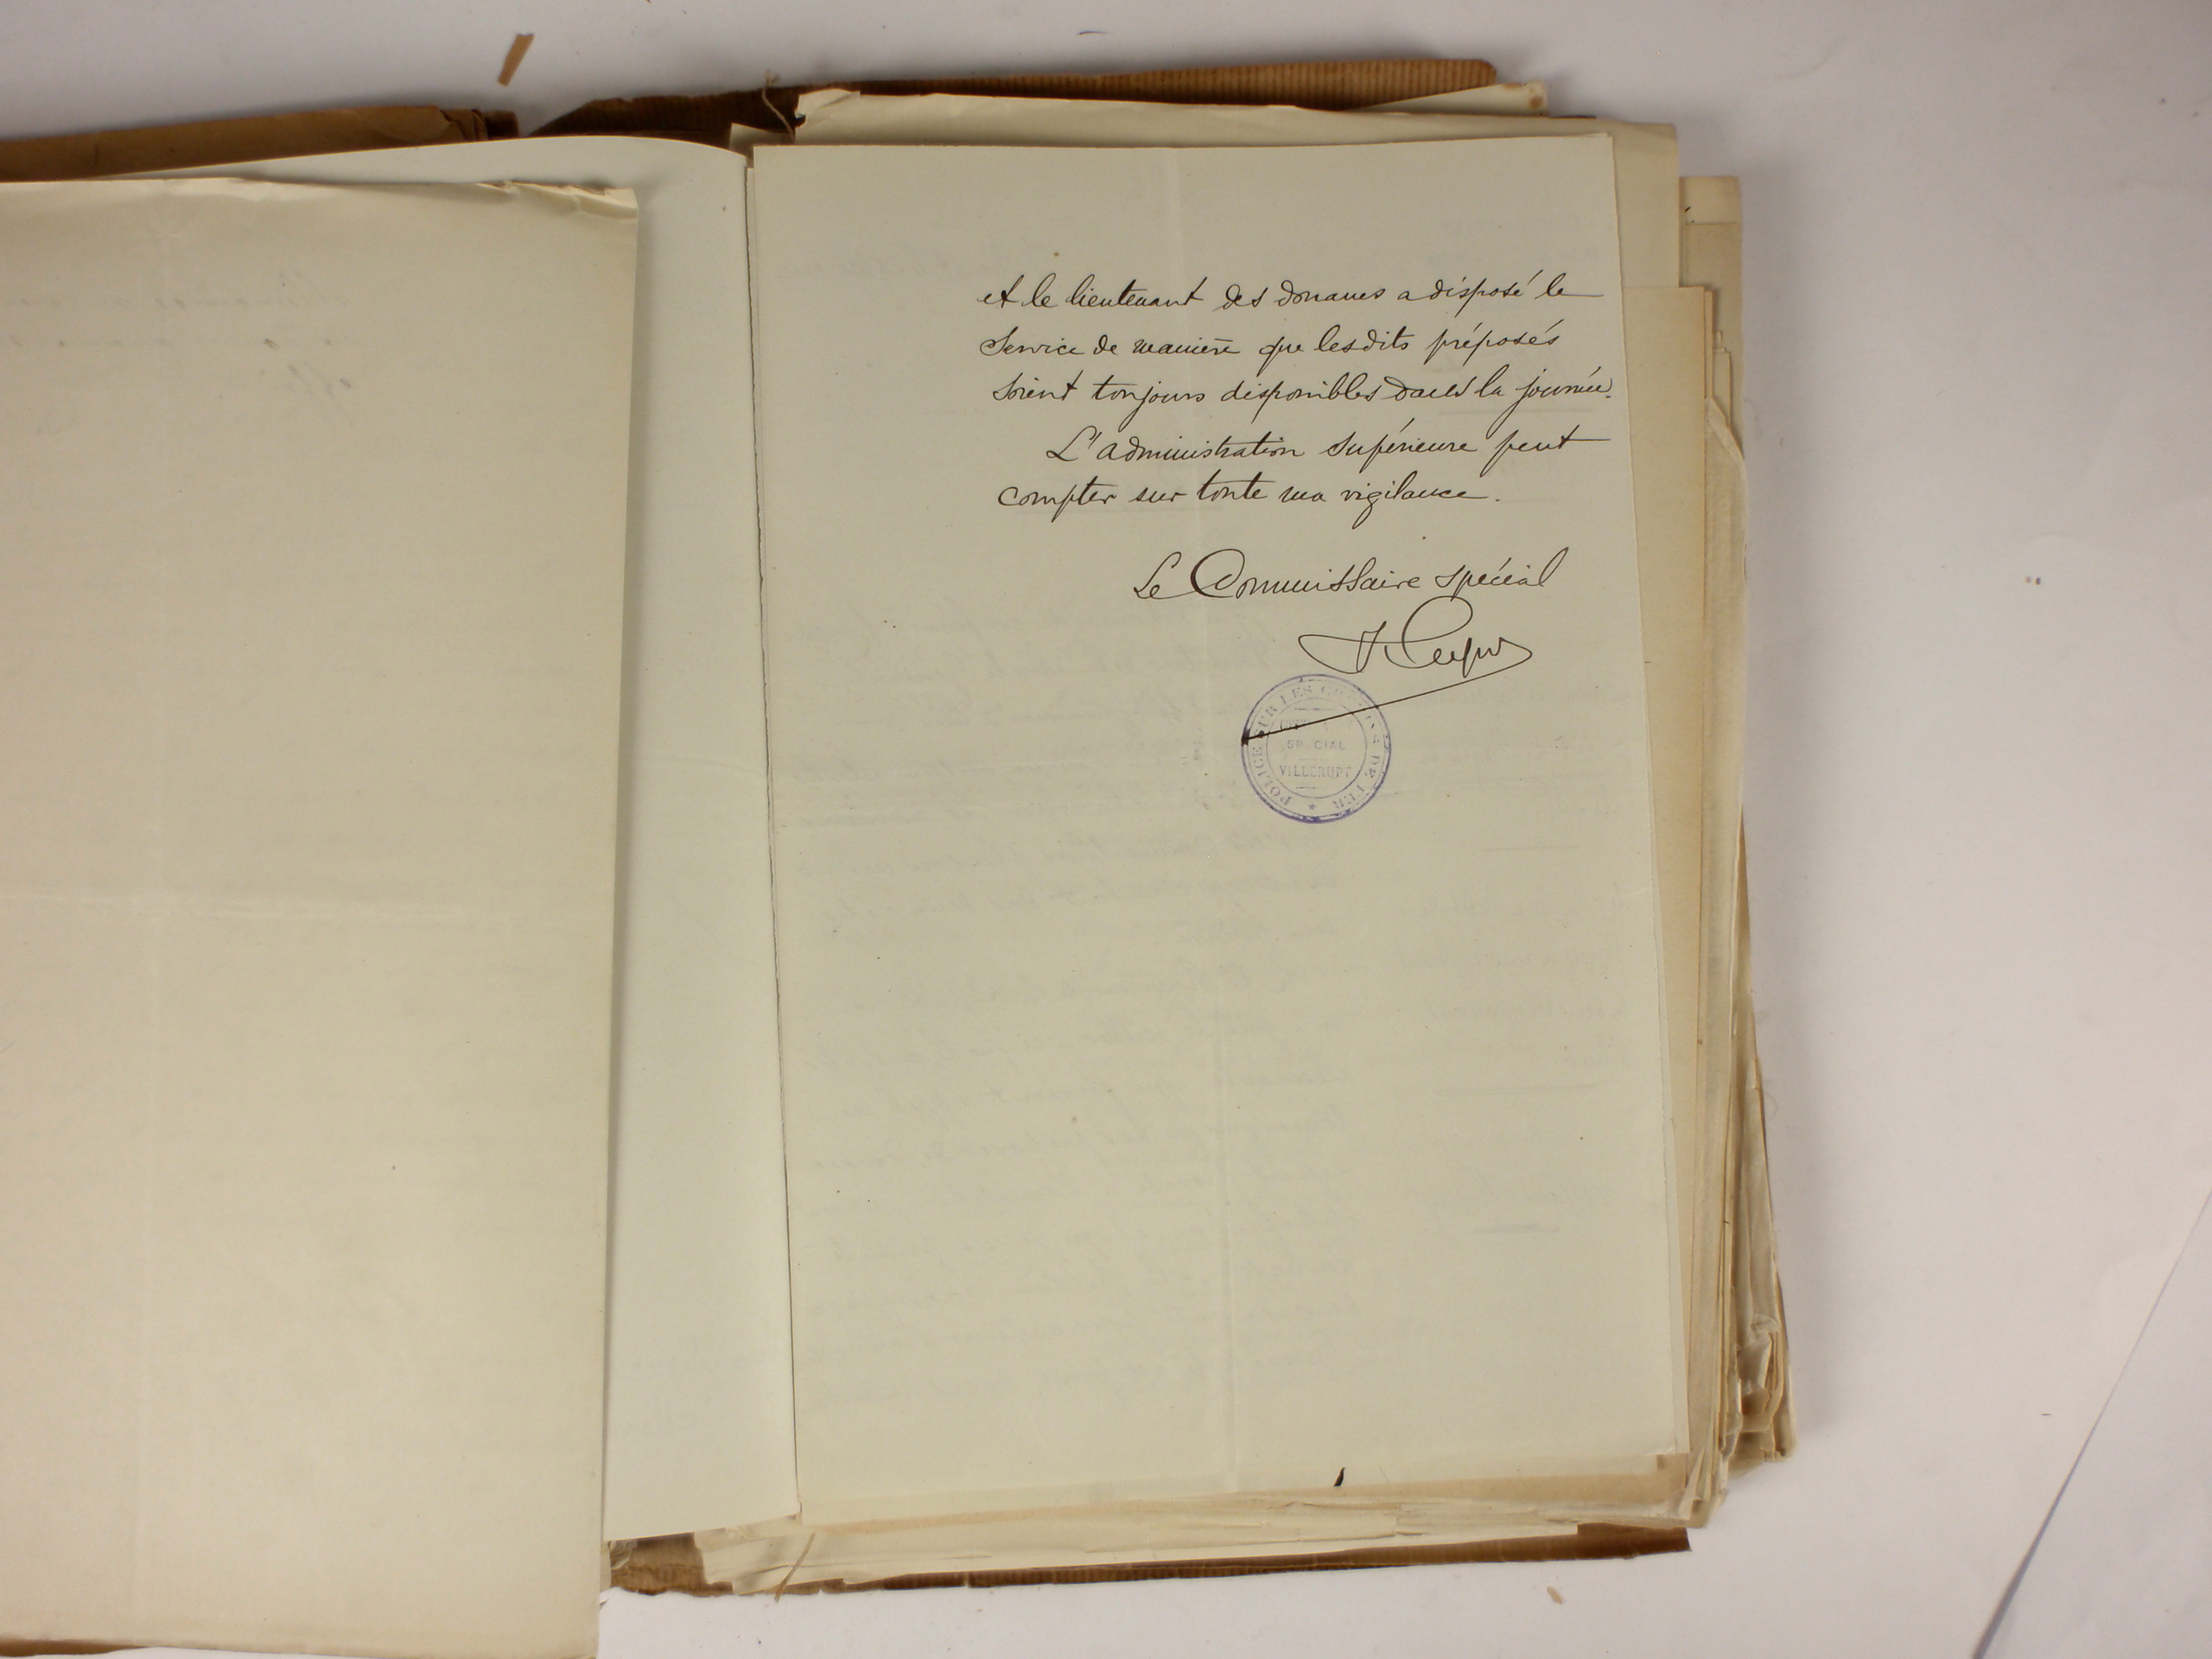 et le lieutenant des douanes a disposé le
service de manière que lesdits préposés
soient toujours disponibles dans la journée.
L'administration supérieure peut
compter sur toute ma vigilance.
Le Commissaire spécial
POLICE SUR LES CHEMINS DE FER
SPECIAL
VILLERUPT